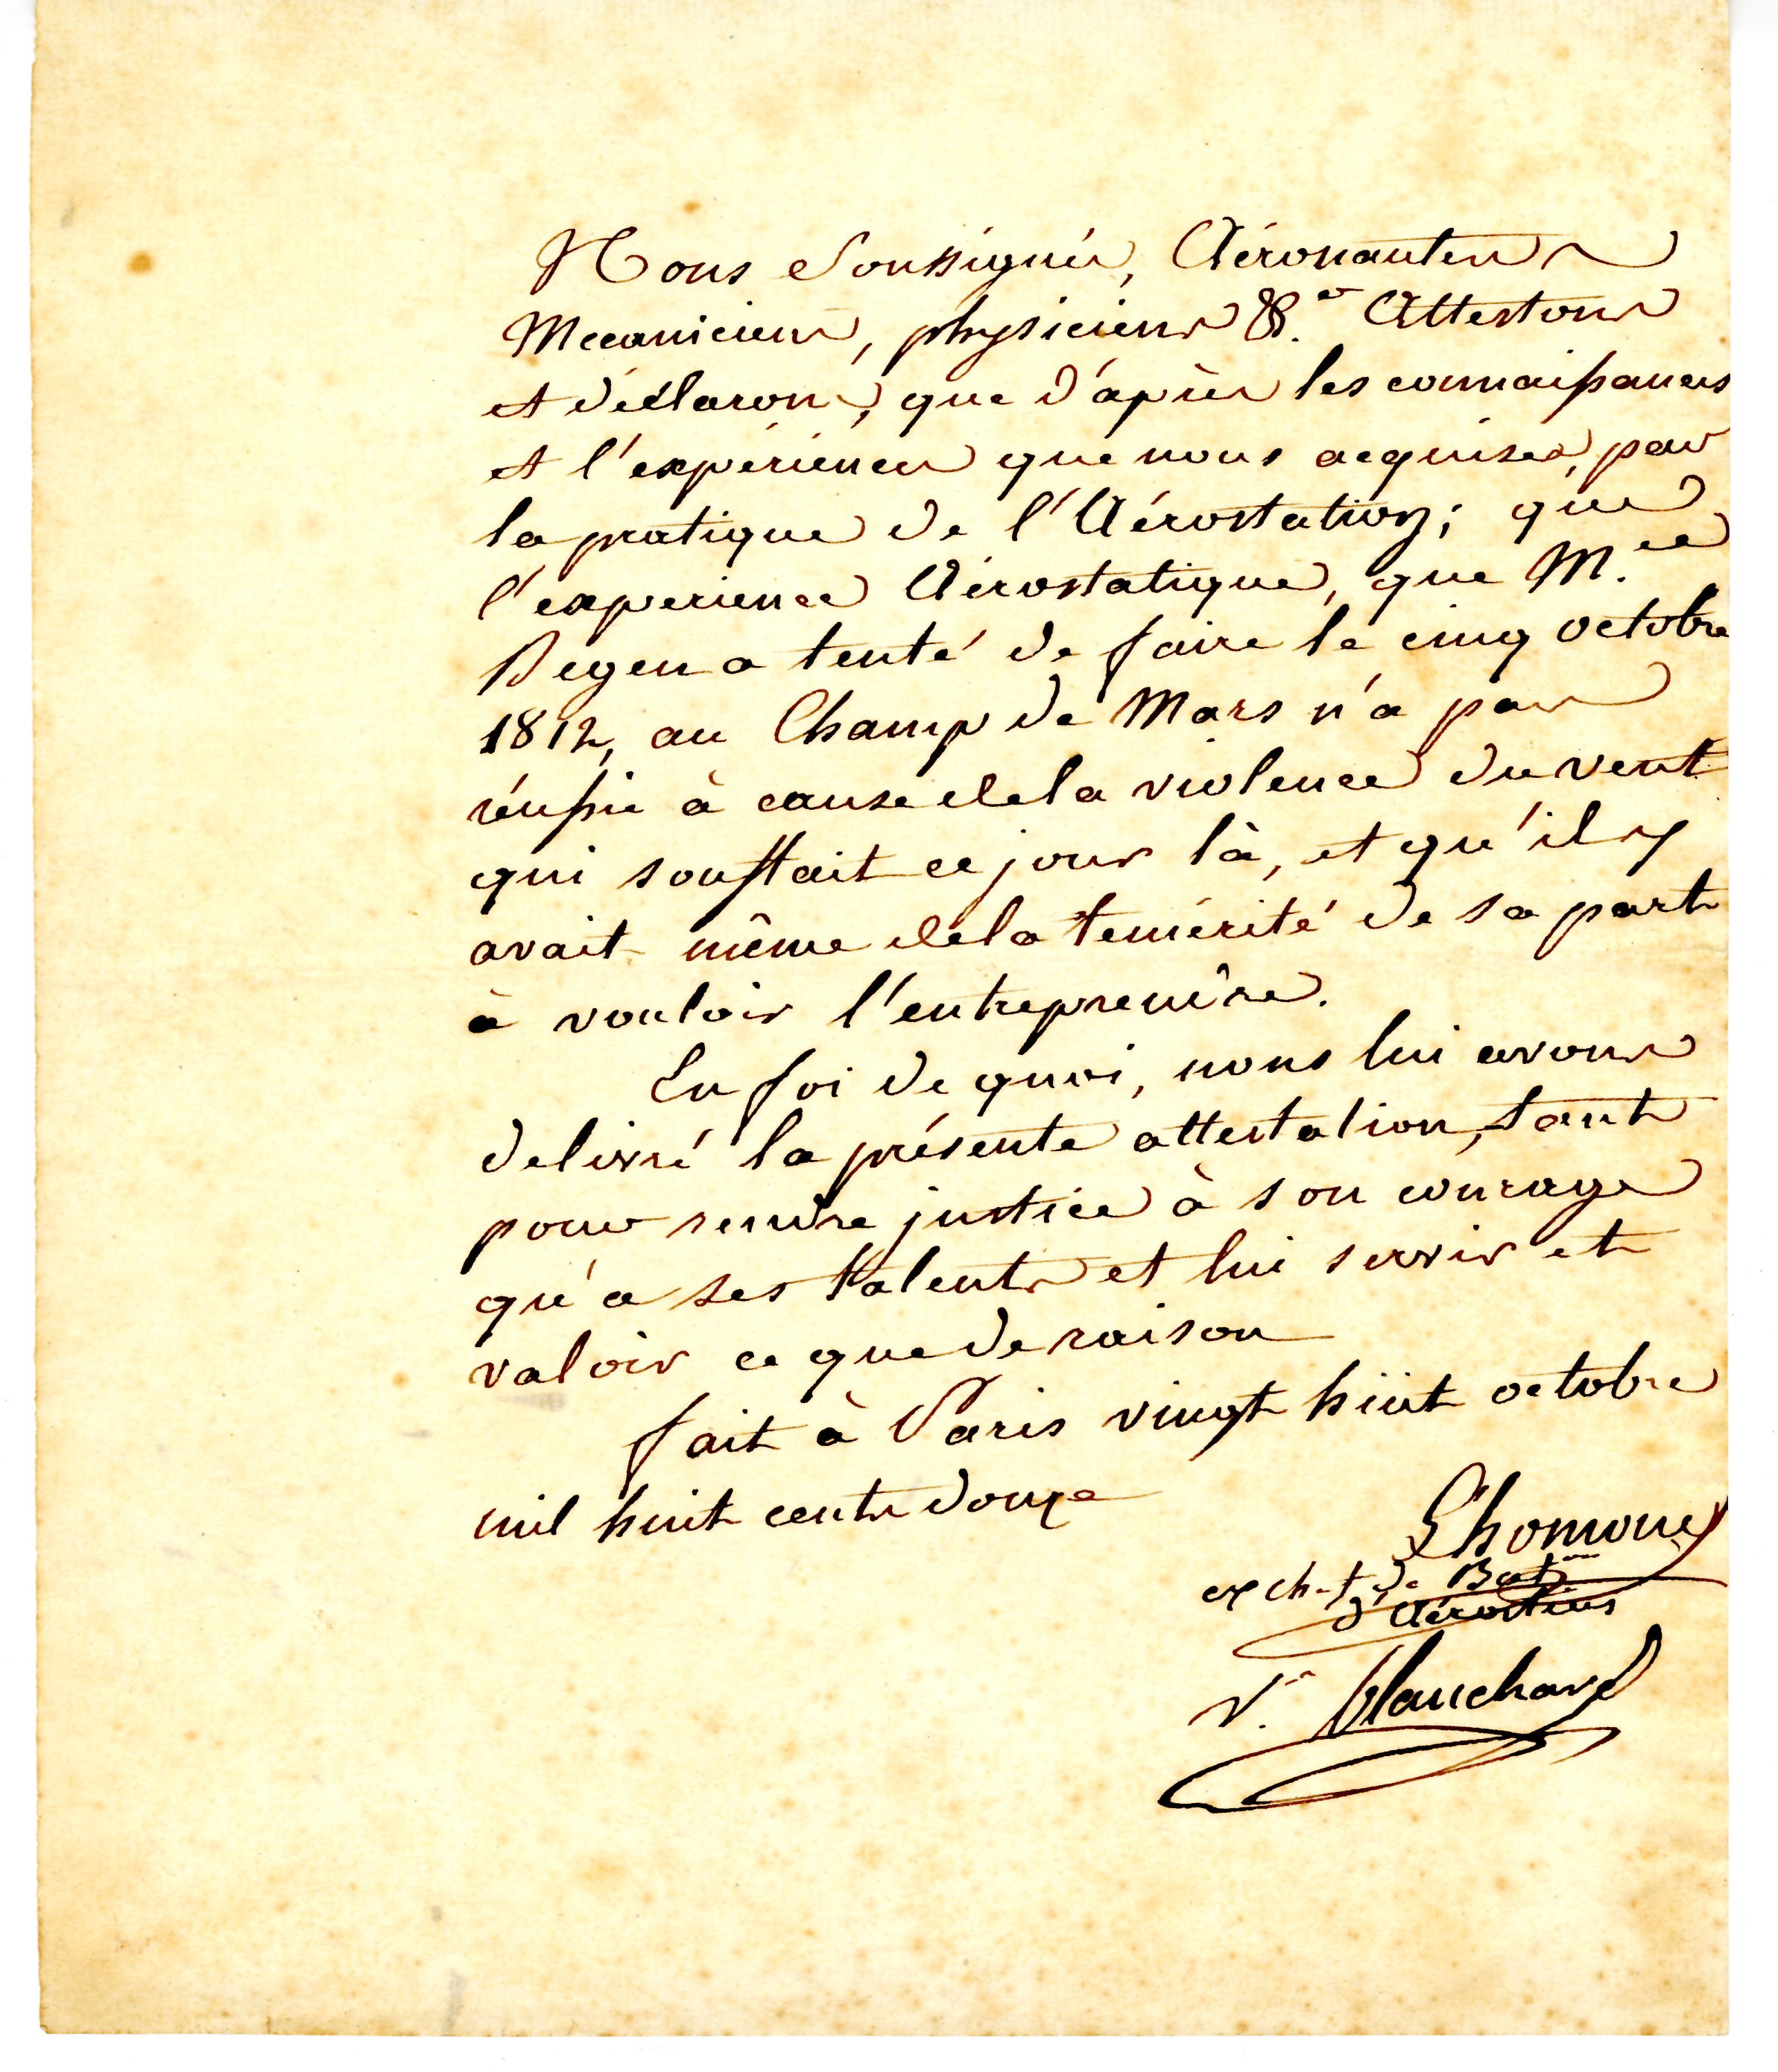 Nous Soussignés, Aéronautes
Mecaniciens, physiciens &.ª Attestons
et déclarons, que d'après les connaissances
et l'expériénces que nous acquises, par
la pratique de l'Aérostation; que
l'experience Aérostatique, que M.
Degen a tenté de faire le cinq octobre
1812, au Champ de Mars n'a pas
réussie à cause de la violence du vent
qui soufflait ce jour là, et qu'il y
avait même de la temérité de sa part
à vouloir l'entreprendre.
En foi de quoi, nous lui avons
delivré la présente attestation, tant
pour rendre justice à son courage
qu'a ses talents et lui servir et
valoir ce que de raison
fait à Paris vingt huit octobre
mil huit cents douze
Lhomond
ex ch. f de Bat.on
d'Aérostiers
V.e Blanchard